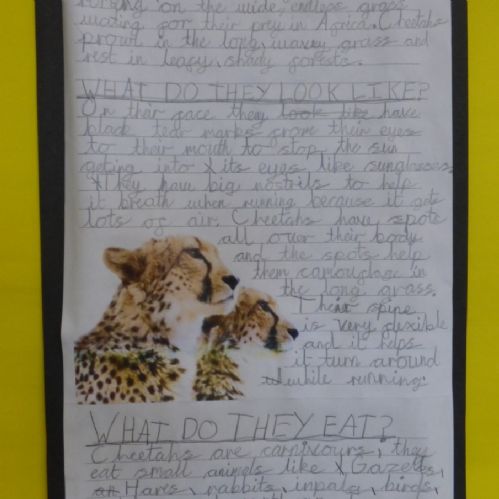 on the wide, endless grass
waiting for their prey in Africa. Cheetahs
prowl in the long, wavy grass and
rest in leafy, shady forests.
WHAT DO THEY LOOK LIKE?
On thair face them look like have
black tear marks grome their eyes
to their mouth to stop the sun
geting into its eyes like sunglasses.
They have big nostrils to help
it breath when running because it gets
lots of air. Cheetahs have spots
all over their body
and the spots help
them camouglage in
the long grass.
Their spine
is very flexible
and it helps
it turn around
while running.
WHAT DO THEY EAT?
Cheetahs are carnivours, they
eat small animals like Gazeles,
Hares, rabbits, inpala, birds,